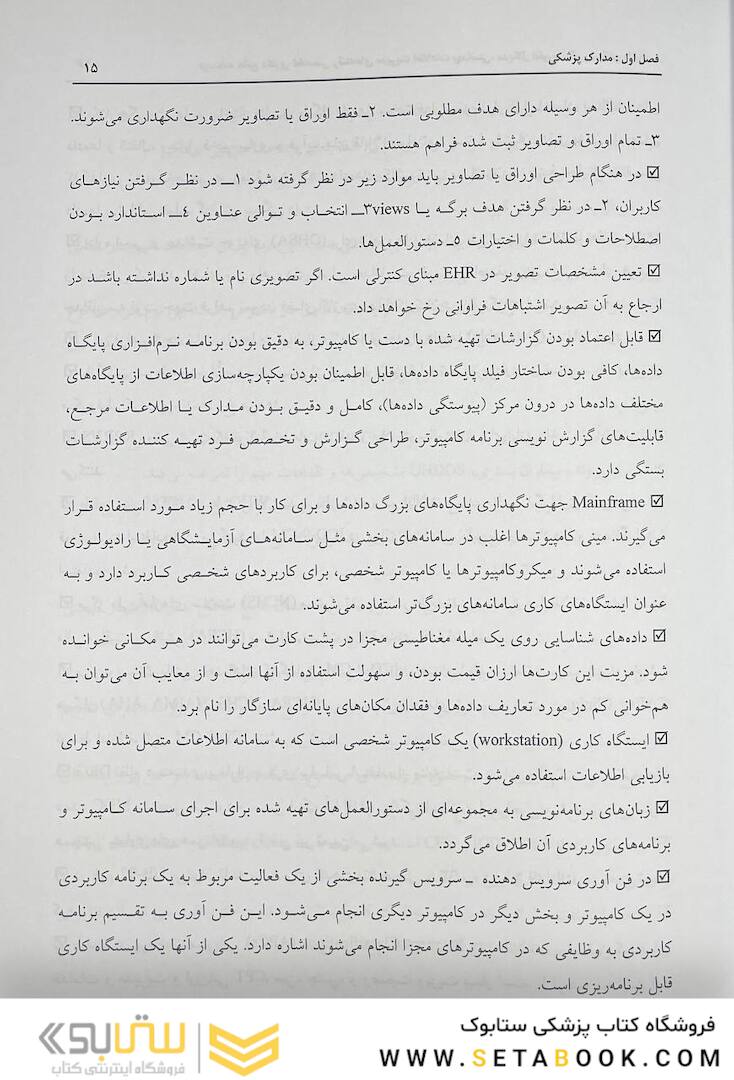 فصل اول : مدارک پزشکی ۱۵
اطمینان از هر وسیله دارای هدف مطلوبی است. ۲ـ فقط اوراق یا تصاویر ضرورت نگهداری می‌شوند.
۳ـ تمام اوراق و تصاویر ثبت شده فراهم هستند.
☑ در هنگام طراحی اوراق یا تصاویر باید موارد زیر در نظر گرفته شود ۱ـ در نظر گرفتن نیازهای
کاربران، ۲ـ در نظر گرفتن هدف برگه یا views۳ـ انتخاب و توالی عناوین ٤ـ استاندارد بودن
اصطلاحات و کلمات و اختیارات ۵ـ دستورالعمل‌ها.
☑ تعیین مشخصات تصویر در EHR مبنای کنترلی است. اگر تصویری نام یا شماره نداشته باشد در
ارجاع به آن تصویر اشتباهات فراوانی رخ خواهد داد.
☑ قابل اعتماد بودن گزارشات تهیه شده با دست یا کامپیوتر، به دقیق بودن برنامه نرم‌افزاری پایگاه
داده‌ها، کافی بودن ساختار فیلد پایگاه داده‌ها، قابل اطمینان بودن یکپارچه‌سازی اطلاعات از پایگاه‌های
مختلف داده‌ها در درون مرکز (پیوستگی داده‌ها)، کامل و دقیق بودن مدارک یا اطلاعات مرجع،
قابلیت‌های گزارش نویسی برنامه کامپیوتر، طراحی گزارش و تخصص فرد تهیه کننده گزارشات
بستگی دارد.
☑ Mainframe جهت نگهداری پایگاه‌های بزرگ داده‌ها و برای کار با حجم زیاد مورد استفاده قرار
می‌گیرند. مینی کامپیوترها اغلب در سامانه‌های بخشی مثل سامانه‌های آزمایشگاهی یا رادیولوژی
استفاده می‌شوند و میکروکامپیوترها یا کامپیوتر شخصی، برای کاربردهای شخصی کاربرد دارد و به
عنوان ایستگاه‌های کاری سامانه‌های بزرگ‌تر استفاده می‌شوند.
☑ داده‌های شناسایی روی یک میله مغناطیسی مجزا در پشت کارت می‌توانند در هر مکانی خوانده
شود. مزیت این کارت‌ها ارزان قیمت بودن، و سهولت استفاده از آنها است و از معایب آن می‌توان به
هم‌خوانی کم در مورد تعاریف داده‌ها و فقدان مکان‌های پایانه‌ای سازگار را نام برد.
☑ ایستگاه کاری (workstation) یک کامپیوتر شخصی است که به سامانه اطلاعات متصل شده و برای
بازیابی اطلاعات استفاده می‌شود.
☑ زبان‌های برنامه‌نویسی به مجموعه‌ای از دستورالعمل‌های تهیه شده برای اجرای سامانه کامپیوتر و
برنامه‌های کاربردی آن اطلاق می‌گردد.
☑ در فن آوری سرویس دهنده ـ سرویس گیرنده بخشی از یک فعالیت مربوط به یک برنامه کاربردی
در یک کامپیوتر و بخش دیگر در کامپیوتر دیگری انجام می‌شود. این فن آوری به تقسیم برنامه
کاربردی به وظایفی که در کامپیوترهای مجزا انجام می‌شوند اشاره دارد. یکی از آنها یک ایستگاه کاری
قابل برنامه‌ریزی است.
فروشگاه کتاب پزشکی ستابوک
WWW.SETABOOK.COM
ستابوک
فروشگاه اینترنتی کتاب